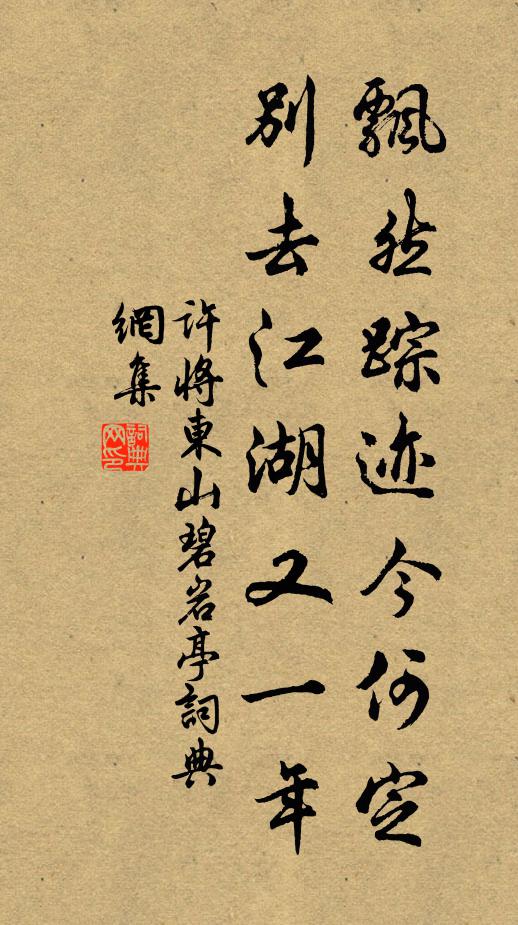 飄然踪迹今何定
別去江湖又一年
許將東山碧岩亭詞典
網集
詞典
网印